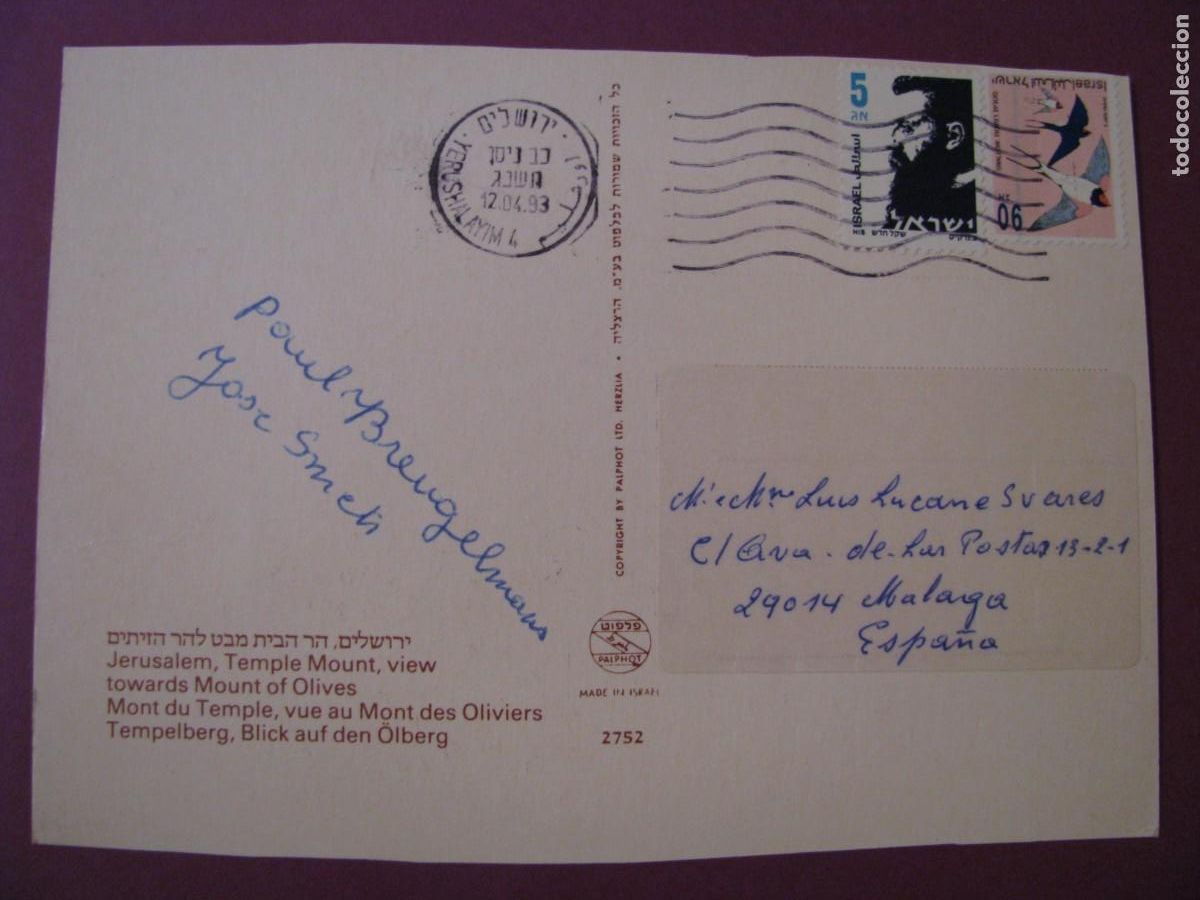 ירושלים
כב ניסן
תשנג
12.04.93
YERUSHALAYIM 4
5
אג
ISRAEL اسرائيل
ישראל
שקל חדש
Israel اسرائيل ישראל
90
אג
paul Breugelmans
Jose Smets
כל הזכויות שמורות לפלפוט בע״מ. הרצליה • COPYRIGHT BY PALPHOT LTD. HERZLIA
M. e Mme Luis Lucane Svares
C/ Cava. de-Las Postas 13-2-1
29014 Malaga
España
ירושלים, הר הבית מבט להר הזיתים
Jerusalem, Temple Mount, view
towards Mount of Olives
Mont du Temple, vue au Mont des Oliviers
Tempelberg, Blick auf den Ölberg
פלפוט
PALPHOT
MADE IN ISRAEL
2752
todocoleccion